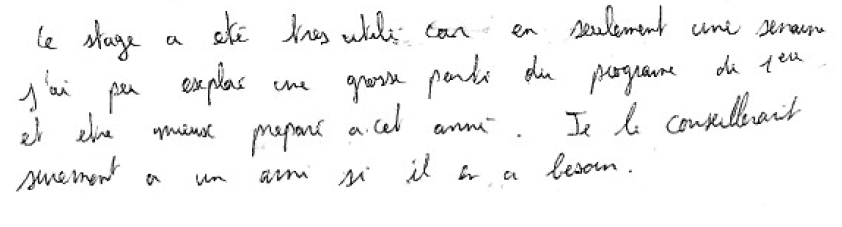 Le stage a été tres utile car en seulement une semaine
j'ai peu exploré une grosse partie du programe de 1ere
et etre mieux preparé a cet année. Je le conseillerait
surement a un ami si il en a besoin.